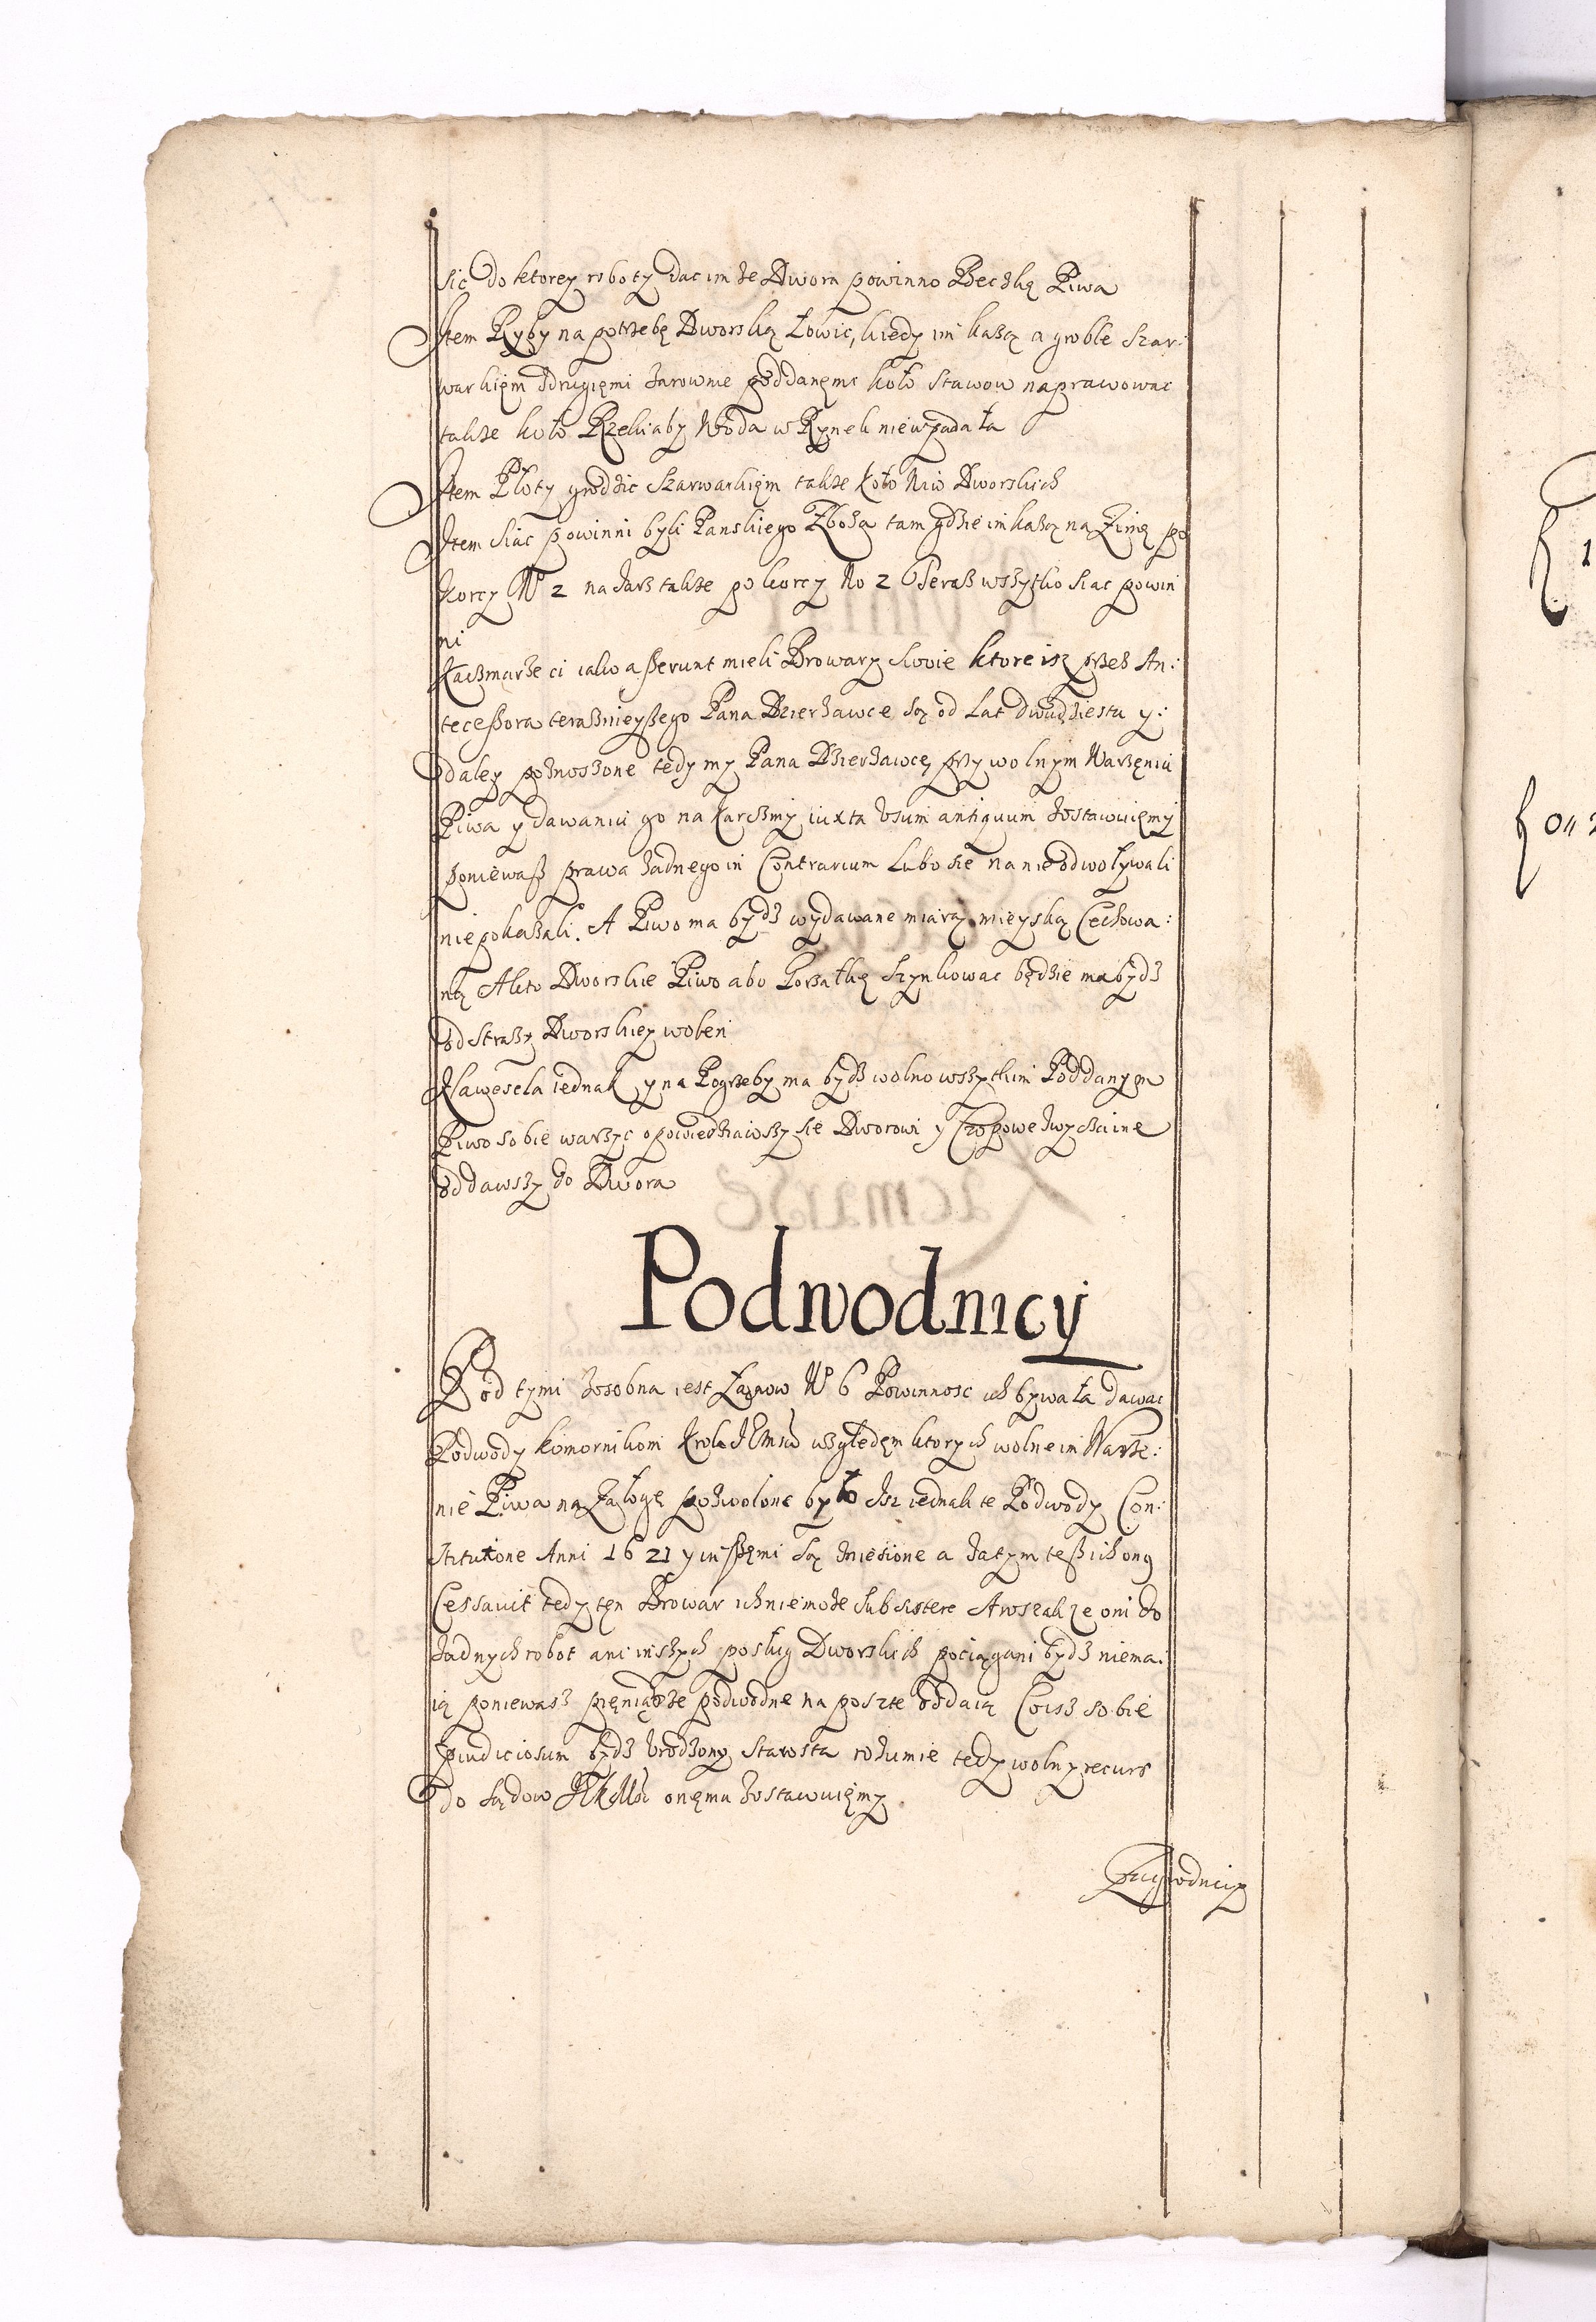 sic do ktorey roboty dac im ze Dwora powinno Beczkę Piwa
Item Ryby na potrzebę Dworską Łowic, kiedy im każą a groble Szar:
warkięm zdrugięmi zarownie poddanęmi koło Stawow naprawowac
także koło Rzeki aby Woda w Rynek niewpadała
Item Płoty grodzic Szarwarkięm także koło Niw Dworskich
Item siac powinni byli Panskiego Zboza tam gdzie im każą na Zimę po
korcy No 2 na Jarz także po korcy No 2 teraz wszytko siac powin
ni
Kaczmarze ci iako asserunt mieli Browary swoie ktore isz przez An:
tecessora teraznieyszego Pana Dzierzawce są od Lat dwudziestu y:
daley poznoszone tedy my Pana Dzierzawcę przy wolnym Warzęniu
Piwa y dawaniu go na Karczmy iuxta Usum antiquum zostawuięmy
poniewasz prawa zadnego in Contrarium Lubo sie na nie odwoływali
niepokazali. A Piwo ma bydz wydawane miarą mieyską Cechowa:
ną A kto Dworskie Piwo abo Gorzałkę Szynkowac będzie ma bydz
od Strazy Dworskiey wolen
Na wesela iednak y na Pogrzeby ma bydz wolno wszytkim Poddanym
Piwo sobie warzyc opowiedziawszy sie Dworowi y Czopowe zwyczaine
oddawszy do Dwora
Podwodnicy
Pod tymi zosobna iest Łanow No 6 Powinnosc ich bywała dawac
Podwody komornikom Krola JEmsci względęm ktorych wolne im Warze:
nie Piwa na Załogę pozwolone było Isz iednak te Podwody Con:
stitutione Anni 1621 y inszęmi są zniesione a zatym tesz ich ong
Cessavit tedy tęn Browar ich niemoze subsistere A wszakze oni do
zadnych robot ani inszych posług Dworskich pociągani bydz niema:
ią poniewasz pięniądze podwodne na poszte oddaią Co isz sobie
piudiciosum bydz Urodzony Starosta rozumie tedy wolny recurs
do Sądow JKMści onęmu zostawuięmy
Zagrodnicy